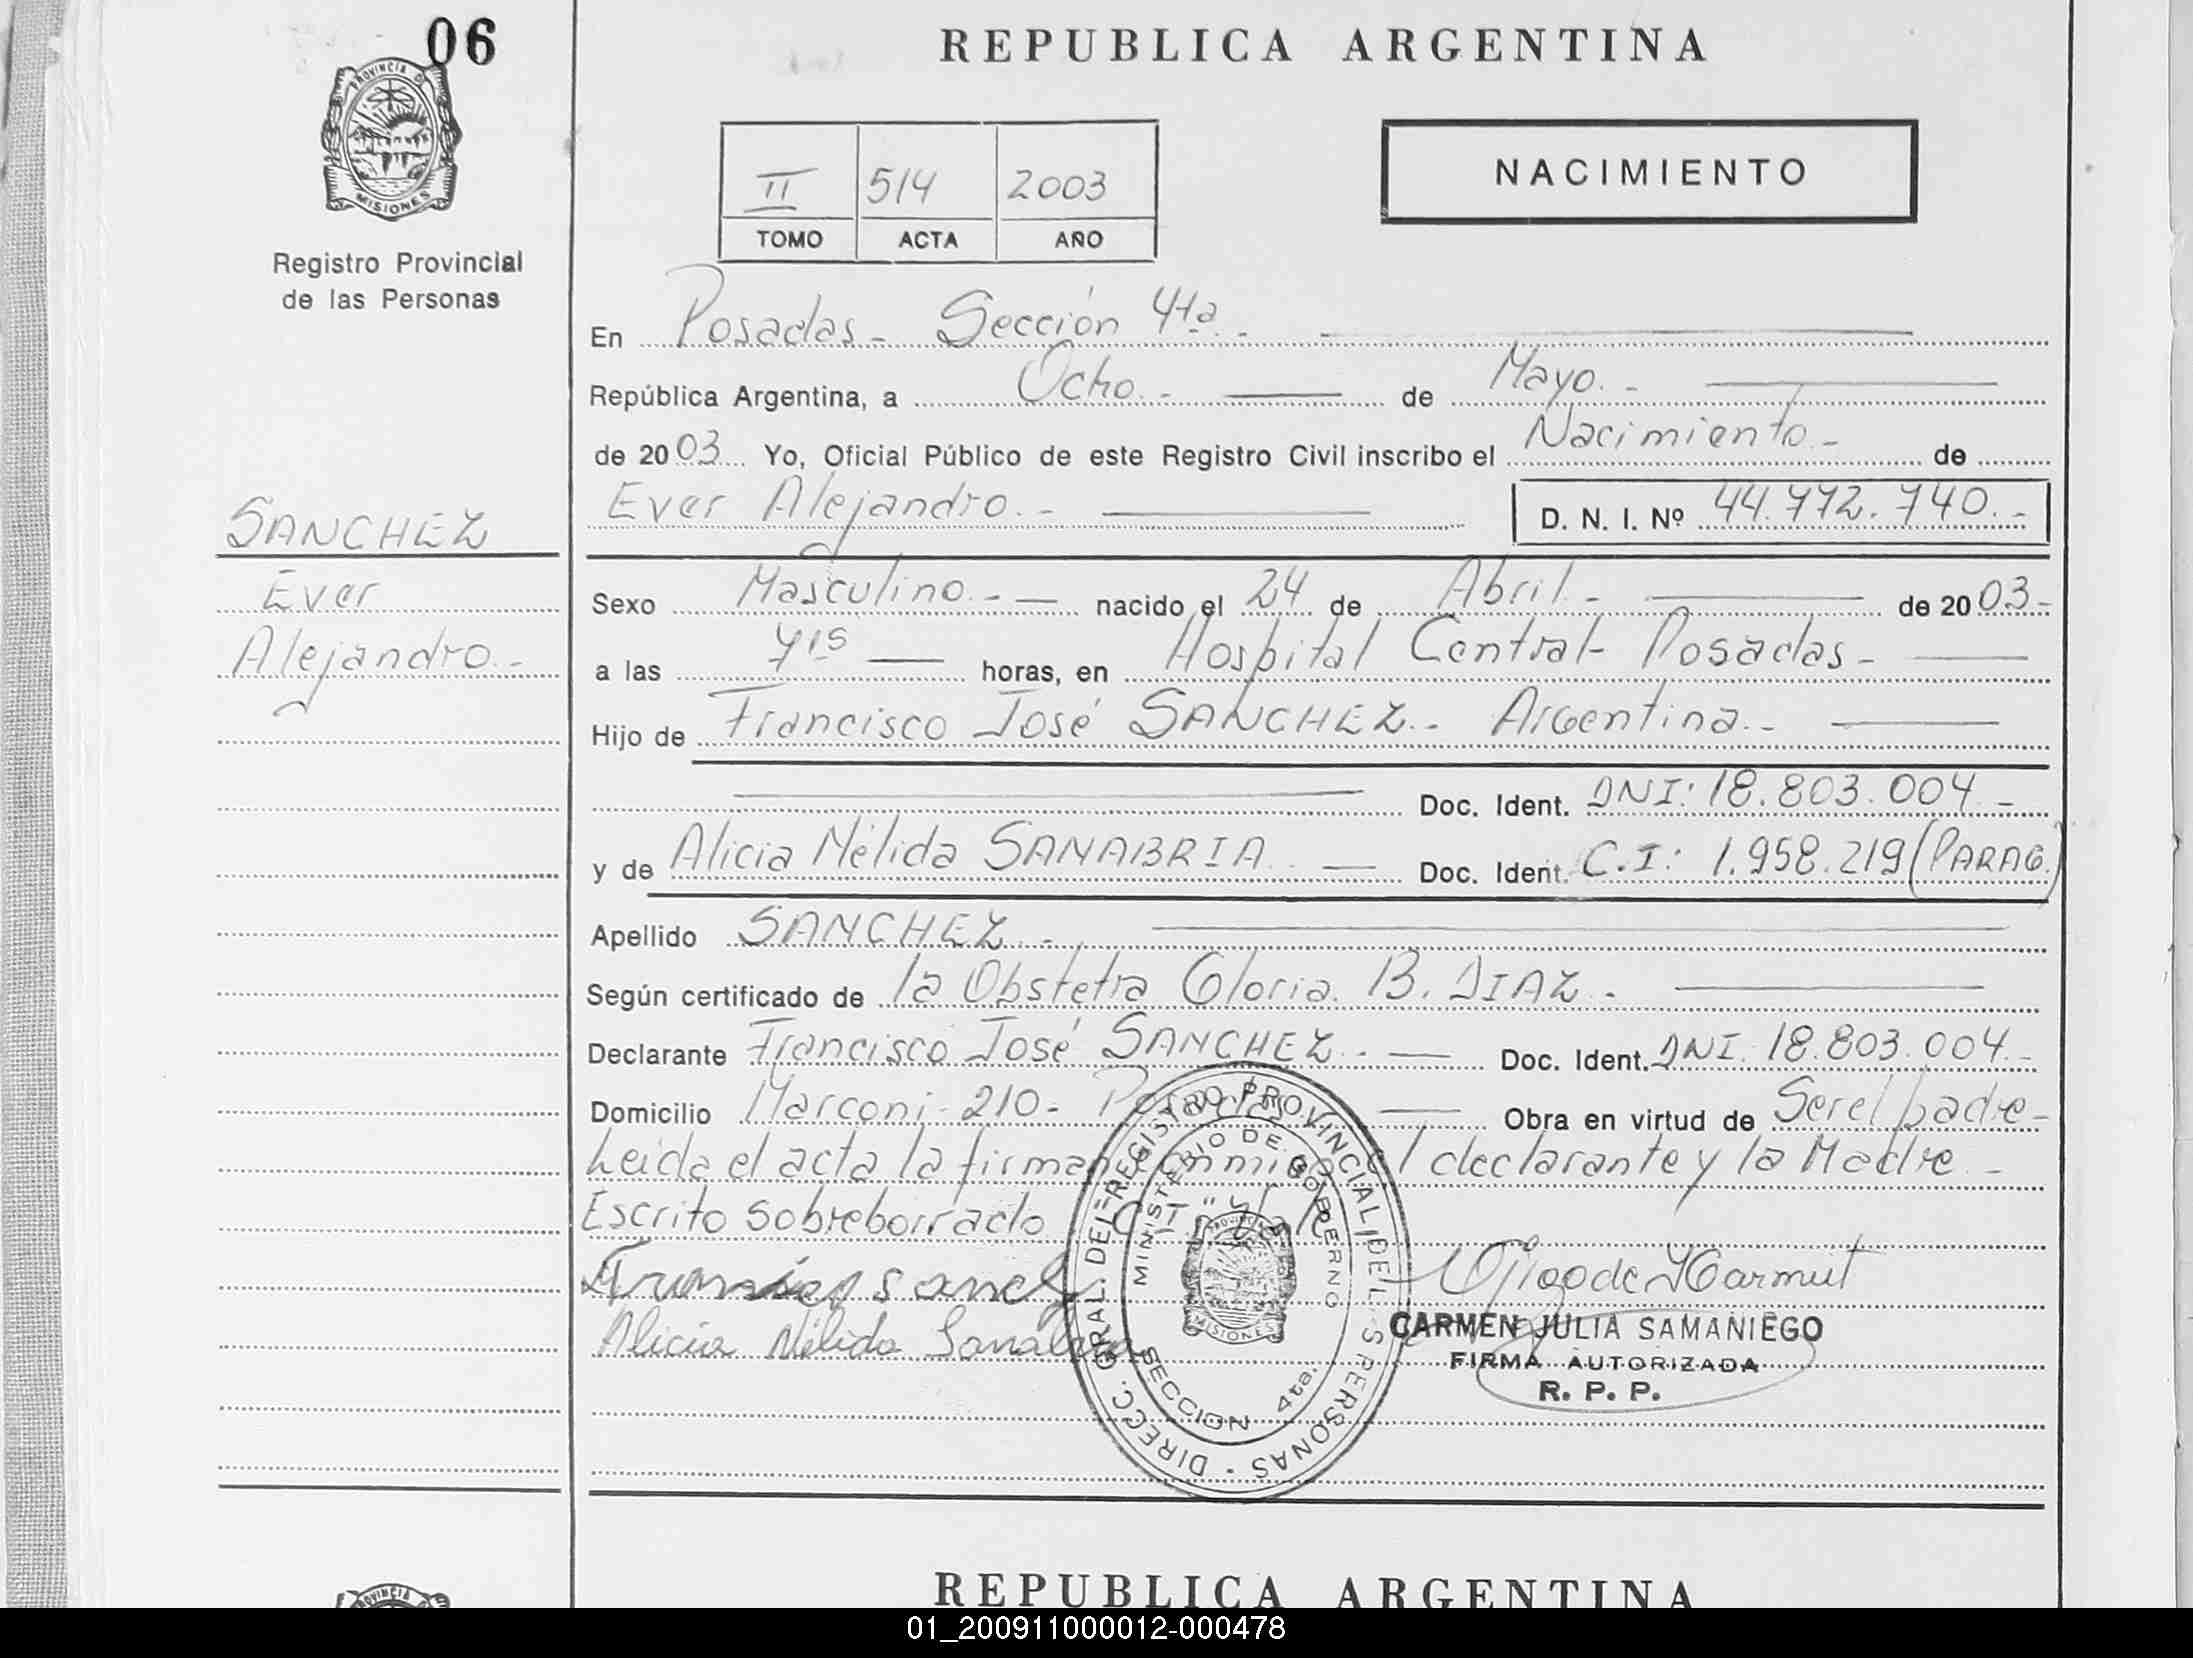 06
PROVINCIA D
MISIONES
Registro Provincial
de las Personas
REPUBLICA ARGENTINA
II 514 2003
TOMO ACTA AÑO
NACIMIENTO
En Posadas - Sección 4ta. -
República Argentina, a Ocho. - de Mayo. -
de 2003 Yo, Oficial Público de este Registro Civil inscribo el Nacimiento - de
Ever Alejandro. - D. N. I. Nº 44.772.740. -
SANCHEZ
Ever
Alejandro. -
Sexo Masculino. - nacido el 24 de Abril - de 2003-
a las 7:15 horas, en Hospital Central- Posadas -
Hijo de Francisco José SANCHEZ. - Argentina. -
Doc. Ident. DNI: 18.803.004 -
y de Alicia Nélida SANABRIA Doc. Ident. C.I: 1.958.219 (PARAG.)
Apellido SANCHEZ -
Según certificado de la Obstetra Gloria B. DIAZ -
Declarante Francisco José SANCHEZ. - Doc. Ident. DNI. 18.803.004. -
Domicilio Marconi - 210 - Posadas Obra en virtud de Ser el padre -
Leida el acta la firman conmigo el declarante y la Madre -
Escrito sobreborrado
Alicia Nélida Sanabria
DIRECC. GRAL. DEL REGISTRO PROVINCIAL DE LAS PERSONAS
MINISTERIO DE GOBIERNO
MISIONES
SECCION 4ta.
CARMEN JULIA SAMANIEGO
FIRMA AUTORIZADA
R. P. P.
PROVINCIA
REPUBLICA ARGENTINA
01_200911000012-000478